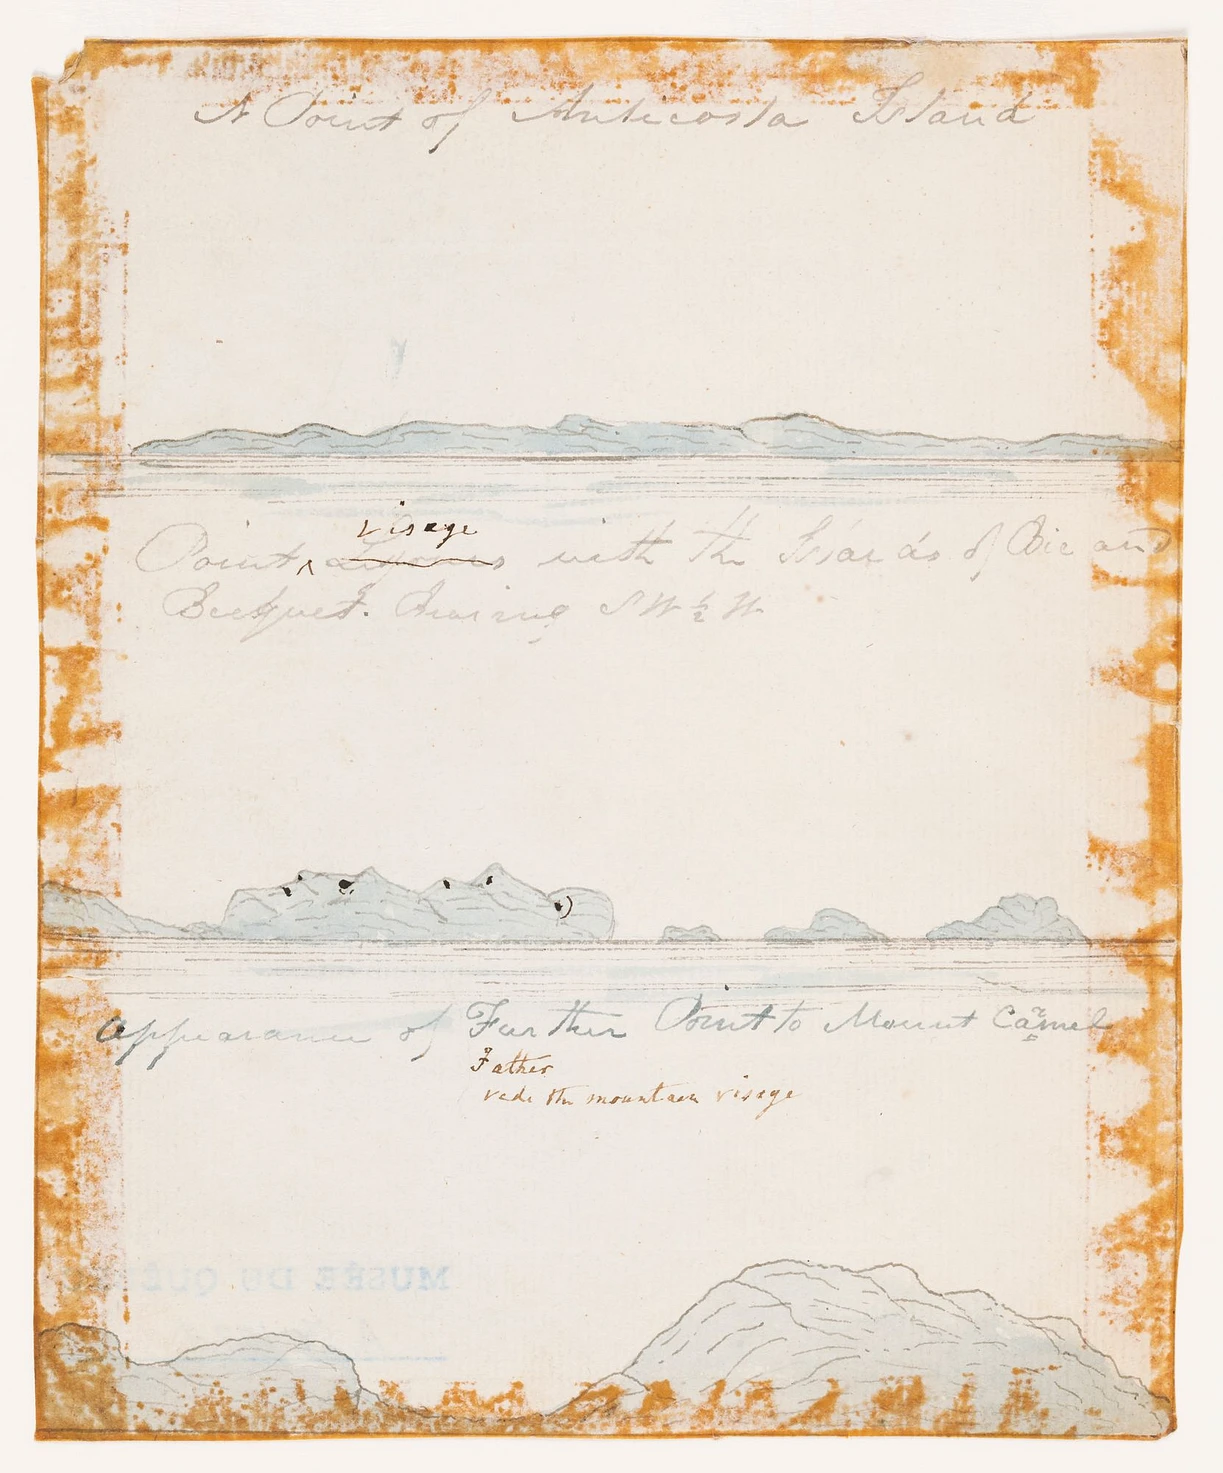 A Point of Anticosta Island
visage
Point with the Islands of Bic and
Becquet. Bearing S W ½ W
Appearance of Farther Point to Mount Camel
Father
vede the mountain visage
MUSÉE DU QUÉ